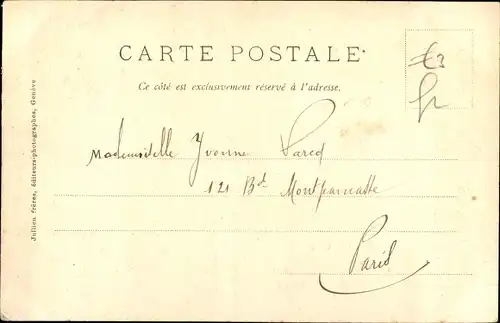 CARTE POSTALE
Ce côté est exclusivement réservé à l'adresse.
Mademoiselle Yvonne
121 Bd Montparnasse
Paris
Jullien frères, éditeurs-photographes, Genève